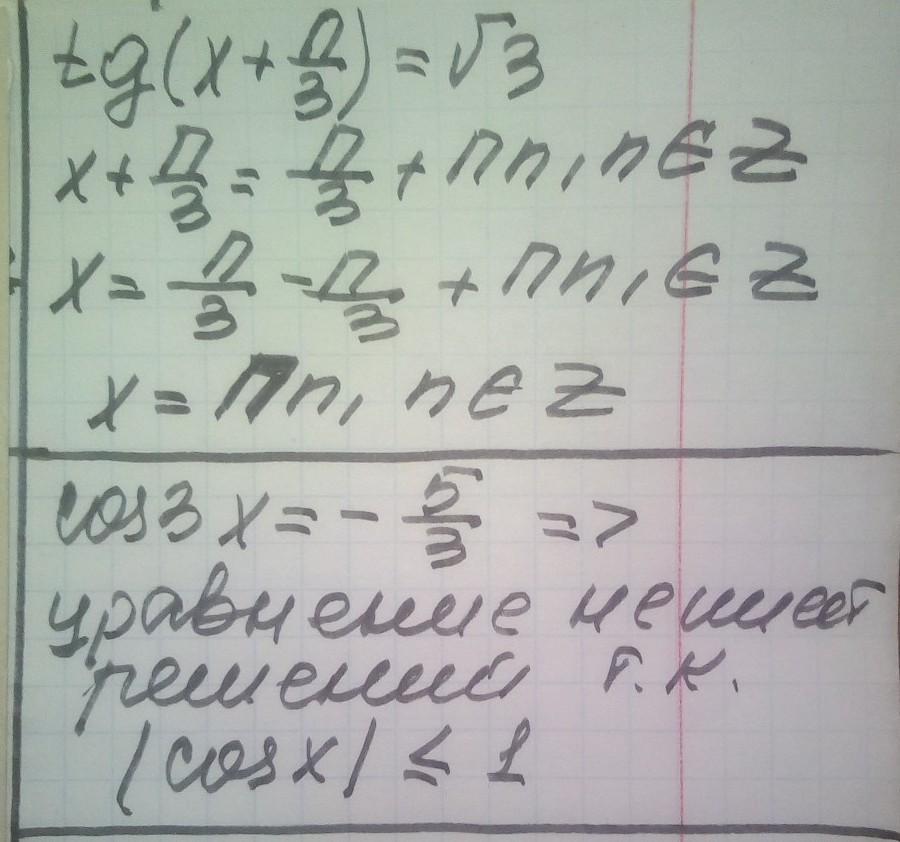 tg(x + П/3) = √3
x + П/3 = П/3 + Пn, n ∈ Z
x = П/3 - П/3 + Пn, ∈ Z
x = Пn, n ∈ Z
cos3x = - 5/3 =>
уравнение не имеет
решений т.к.
|cosx| ≤ 1